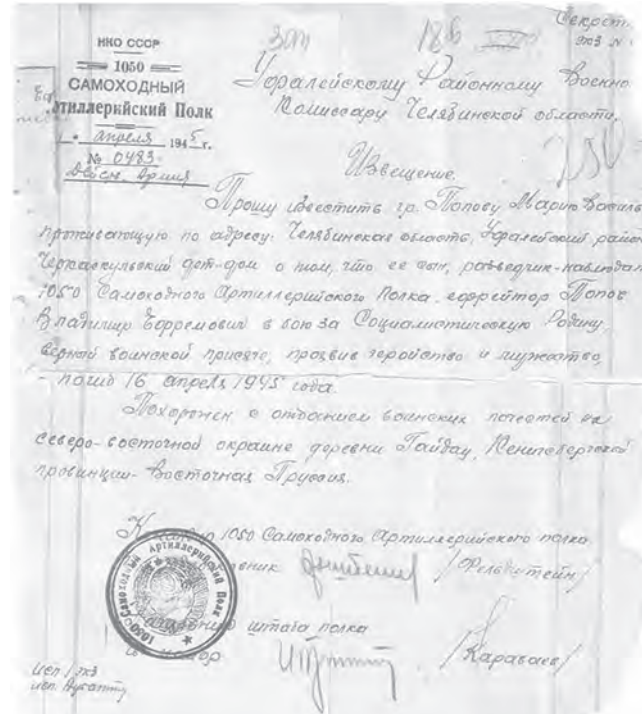 Секретн.
экз N
НКО СССР
1050
САМОХОДНЫЙ
Артиллерийский Полк
апреля 1945 г.
№ 0483
Действ. Армия
186
Уфалейскому Районному Военно
Комиссару Челябинской области.
Извещение.
Прошу известить гр. Попову Марию Василь
проживающую по адресу: Челябинская область, Уфалейский район
Черкаскульский дет-дом о том, что ее сын, разведчик-наблюдат
1050 Самоходного Артиллерийского Полка, ефрейтор Попов
Владимир Ефремович в бою за Социалистическую Родину,
верный воинской присяге, проявив геройство и мужество,
- погиб 16 апреля 1945 года.
Похоронен с отданием воинских почестей на
северо-восточной окраине деревни Гайдау, Кенигсбергской
провинции - Восточная Пруссия.
1050 Самоходного Артиллерийского полка
/Фельдштейн/
1050 Самоходный Артиллерийский Полк
штаба полка
/Караваев/
исп. 1 экз